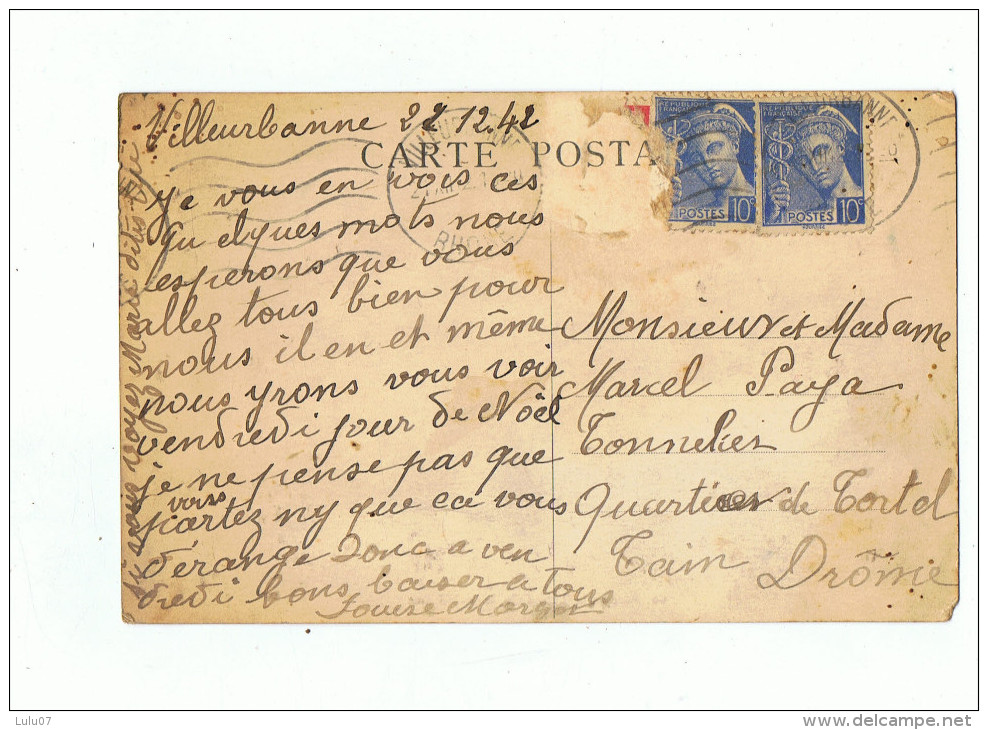 Villeurbanne 22 12.42
CARTE POSTA
REPUBLIQUE FRANÇAISE
POSTES 10c
REPUBLIQUE FRANÇAISE
POSTES 10c
je vous en vois ces
quelques mots nous
esperons que vous
allez tous bien pour
nous il en et même
nous yrons vous voir
vendredi jour de Nöel
je ne pense pas que
vous
partez ny que ca vous
dérange Donc a ven
dredi bons baiser a tous
Louise
si vous voyez Marie dites
Monsieur et Madame
Marcel Paya
Tonnelier
Quartier de Tortel
Tain Drôme
Lulu07
http://www.delcampe.net